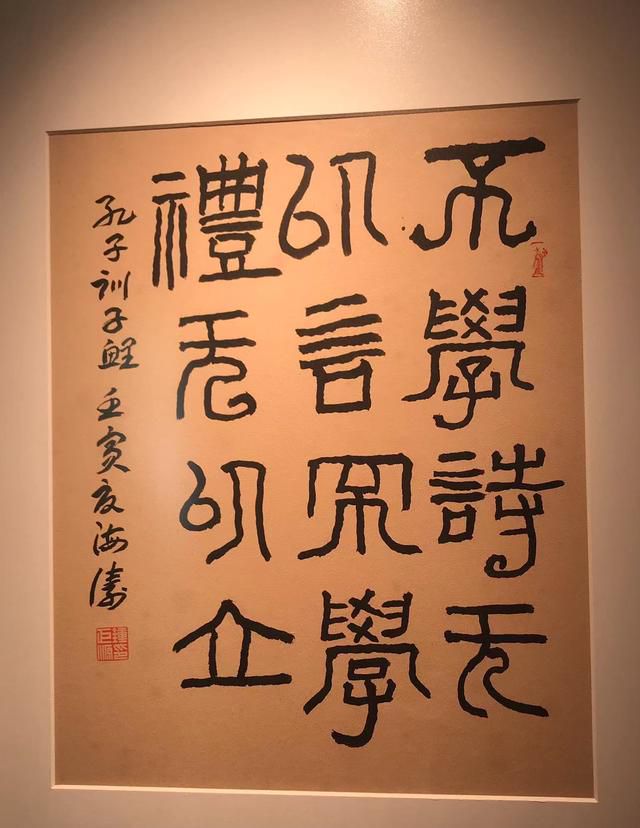 不學詩无
以言不學
禮无以立
孔子訓子鯉 壬寅夏海